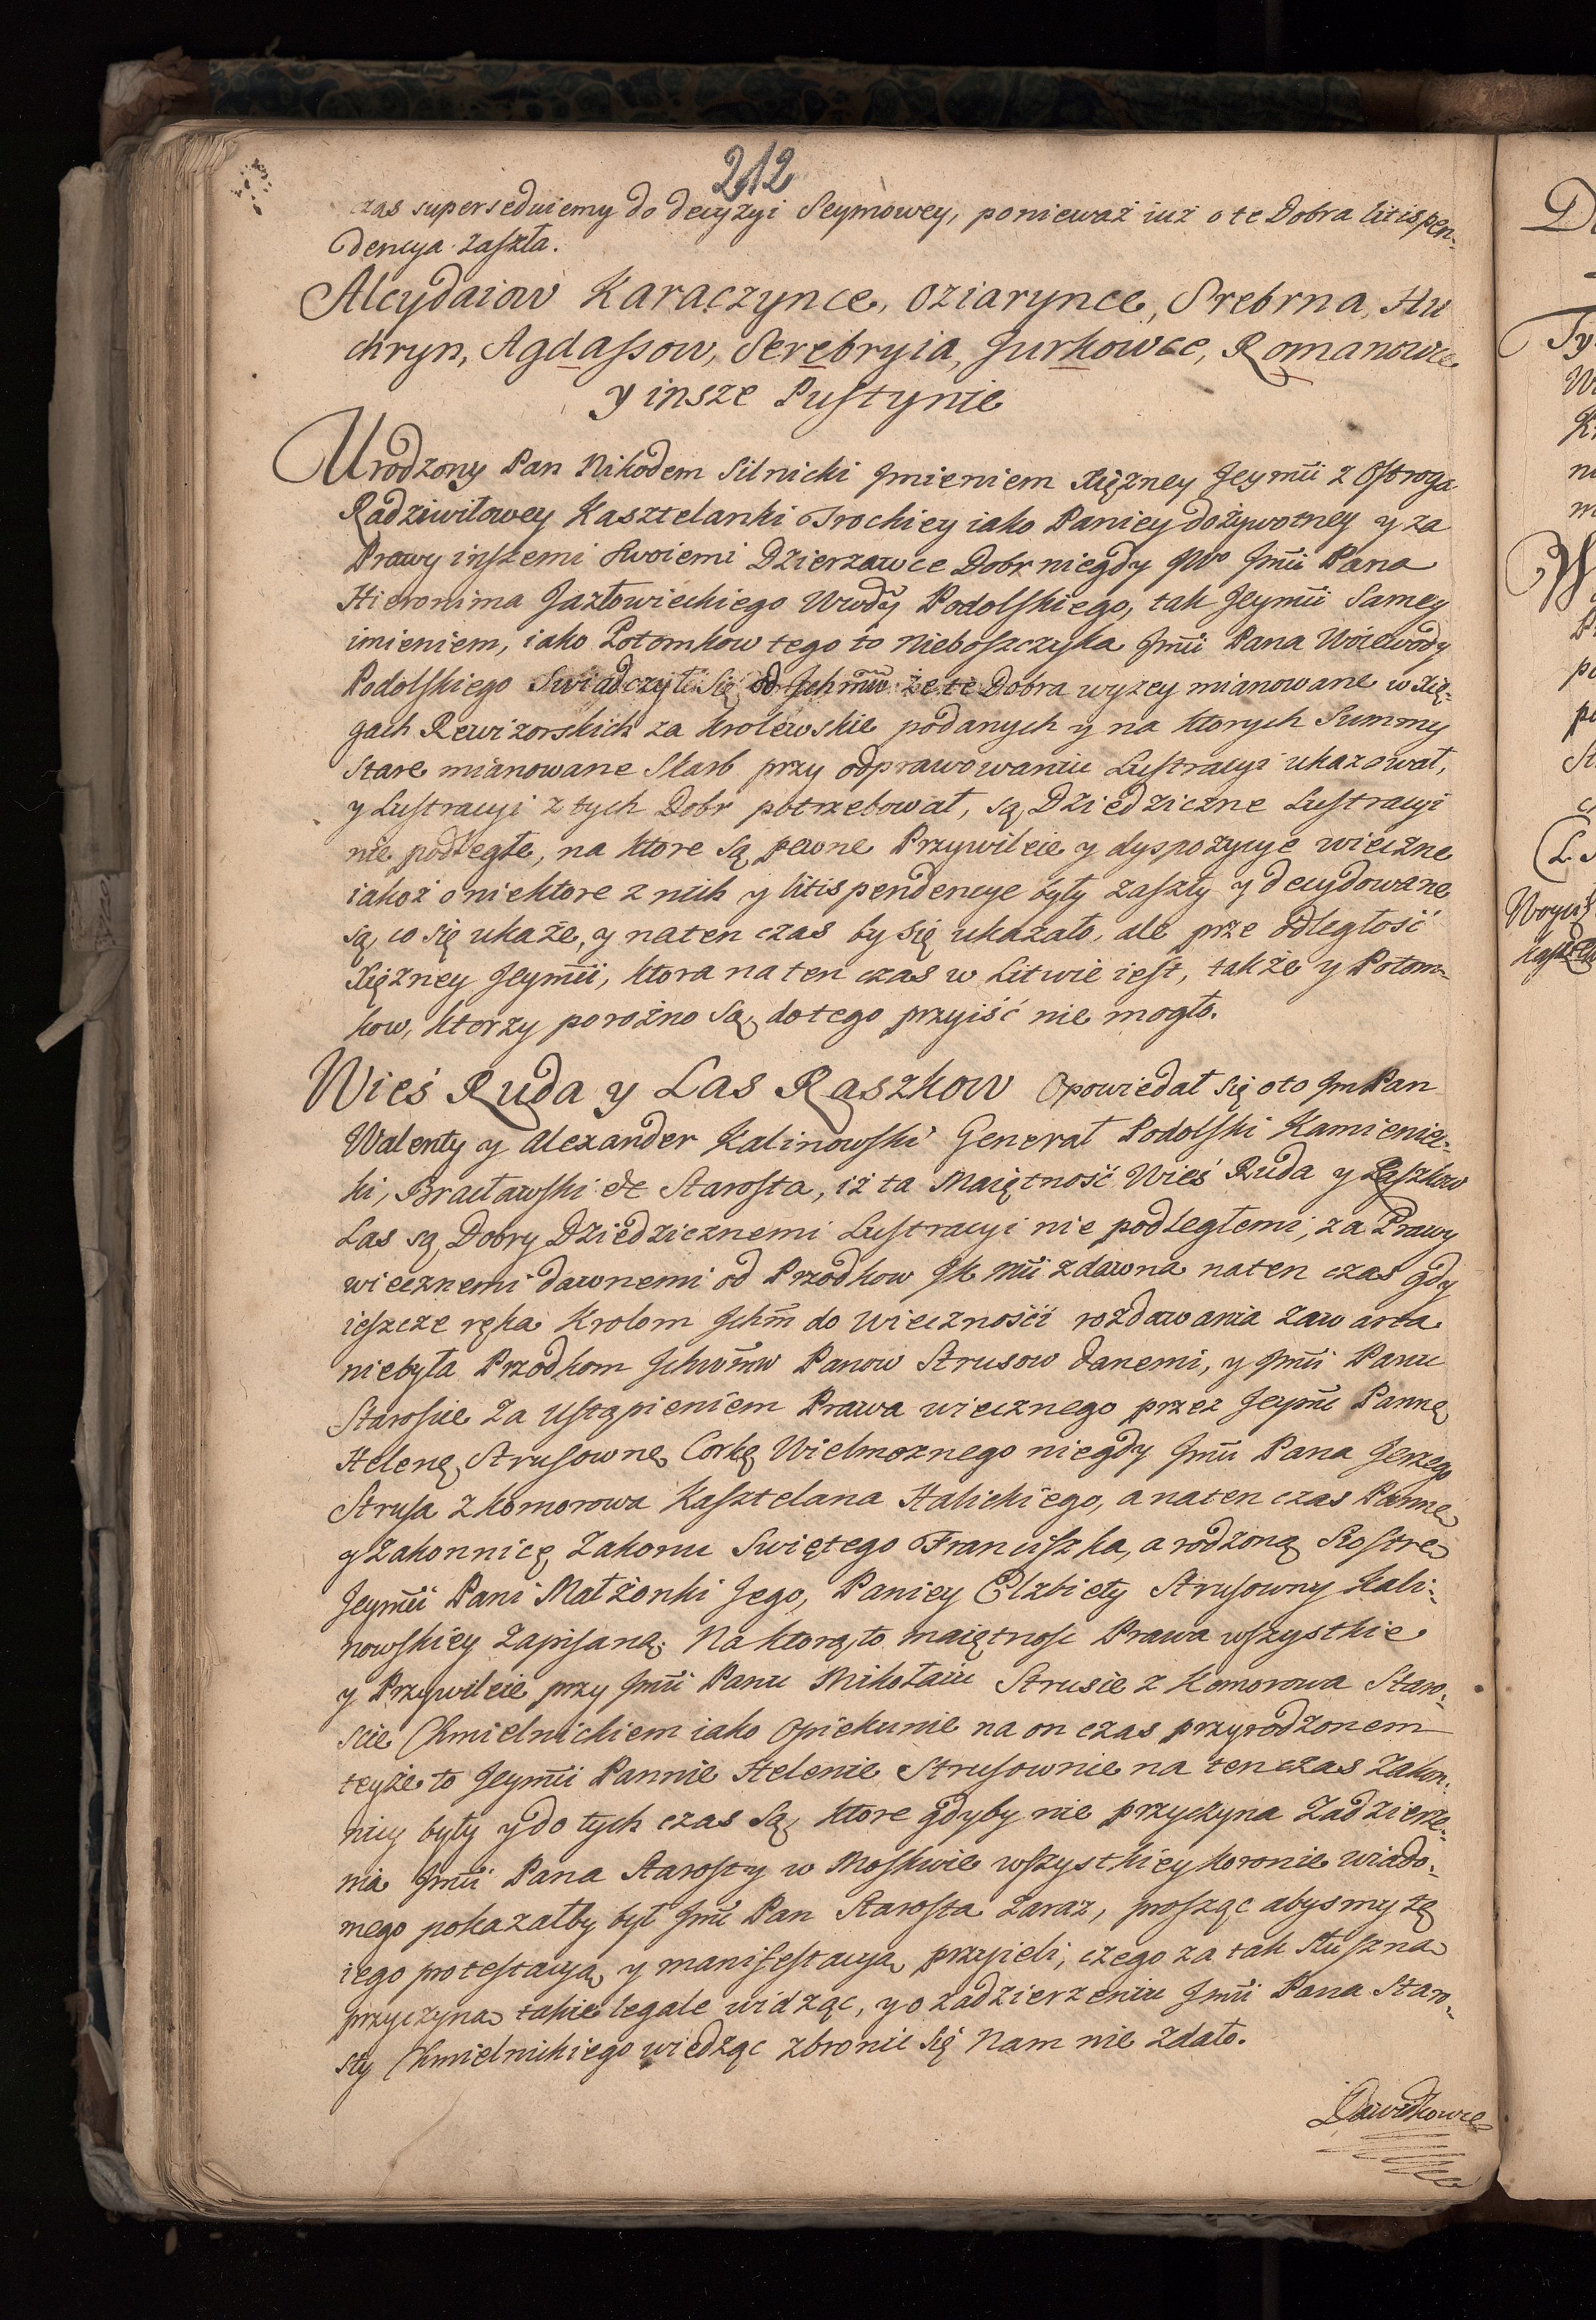 212
czas supersedujemy do decyzyi Seymowey, ponieważ iuż o te Dobra litispen-
dencya zaszła.
Alcydaiow Karaczynce, Oziarynce, Srebrna, Hu
chryn, Agdaszow, Serebryia, Jurkowce, Romanowce
y insze Pustynie
Urodzony Pan Nikodem Silnicki Jmieniem Xiężney Jeymći z Ostroga
Radziwiłowey Kasztelanki Trockiey iako Paniey dożywotney y za
Prawy inszemi Swoiemi Dzierzawce Dobr niegdy Jmći Pana
Hieronima Jazłowieckiego Wwdy Podolskiego, tak Jeymći Samey
imieniem, iako Potomkow tego to Nieboszczyka Jmći Pana Woiewody
Podolskiego Swiadczył Się od Jchmći że te Dobra wyzey mianowane w Xię-
gach Rewizorskich za Krolewskie podanych y na ktorych Summy
Stare mianowane Skarb przy odprawowaniu Lustracyi ukazował,
y Lustracyi z tych Dobr potrzebował, są Dziedziczne Lustracyi
nie podległe, na ktore są pewne Przywileie y dyspozycye wieczne
iakoż o niektore z nich y litispendencye były zaszły y decydowane
są, co się ukaże, y na ten czas by się ukazało, ale prze odległość
Xiężney Jeymći, ktora na ten czas w Litwie iest, także y Potom-
kow, ktorzy porożno są, do tego przyiść nie mogło.
Wieś Ruda y Las Raszkow Opowiedał się oto Jm Pan
Walenty y Alexander Kalinowski Generał Podolski Kamieniec-
ki, Bracławski etc Starosta, iż ta Maiętność Wieś Ruda y Raszkow
Las są Dobry Dziedzicznemi Lustracyi nie podległemi, za Prawy
wiecznemi dawnemi od Przodkow Jk Mći zdawna na ten czas gdy
ieszcze ręka Krolom Jchm do wiecznośći rozdawania zawarta
niebyła Przodkom Panow Strusow danemi, y Jmći Panu
Staroscie za Ustąpieniem Prawa wiecznego przez Jeymć Pannę
Helenę Strusownę Corkę Wielmoznego niegdy Jmći Pana Jerzego
Strusa z Komorowa Kasztelana Halickiego, a na ten czas Pannę
y Zakonnicę Zakonu Swiętego Franciszka, a rodzoną Siostrę
Jeymći Pani Małżonki Jego, Paniey Elzbiety Strusowny Kali-
nowskiey Zapisaną. Na ktorą to maiętnosc Prawa wszystkie
y Przywileie przy Jmći Panu Mikołaiu Strusie z Komorowa Staro-
scie Chmielnickiem iako Opiekunie na on czas przyrodzonem
teyże to Jeymći Pannie Helenie Strusownie na ten czas Zakon-
nicy były y do tych czas są, ktore gdyby nie przyczyna Zadzierże-
nia Jmći Pana Starosty w Moskwie wszystkiey Koronie wiado-
mego pokazałby był Jmć Pan Starosta zaraz, prosząc abysmy tę
iego protestacyą y manifestacyą przyieli, czego za tak słuszną
przyczyną takie legale widząc, y o zadzierzeniu Jmći Pana Staro-
sty Chmielnickiego wiedząc zbronić Się Nam nie zdało.
Dawidkowce